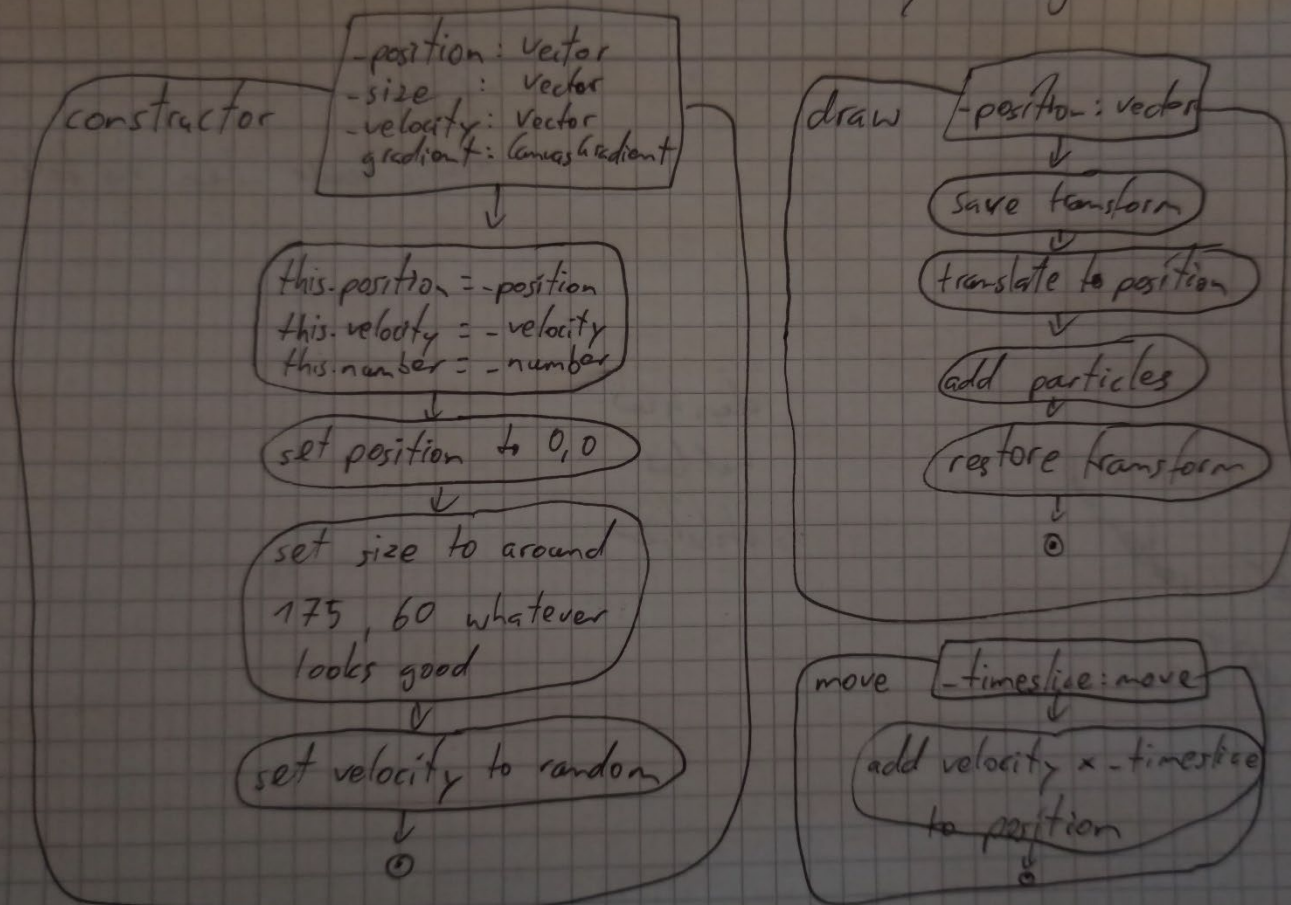 constructor
-position: vector
-size : vector
-velocity: vector
gradient: CanvasGradient
this.position = -position
this.velocity = - velocity
this.number = - number
set position to 0,0
set size to around
175, 60 whatever
looks good
set velocity to random
draw
-position: vector
save transform
translate to position
add particles
restore transform
move
-timeslice: move
add velocity x -timeslice
to position